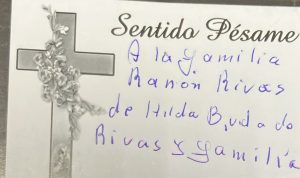 Sentido Pésame
A la familia
Ramón Rivas
de Hilda B, vda de
Rivas y familia